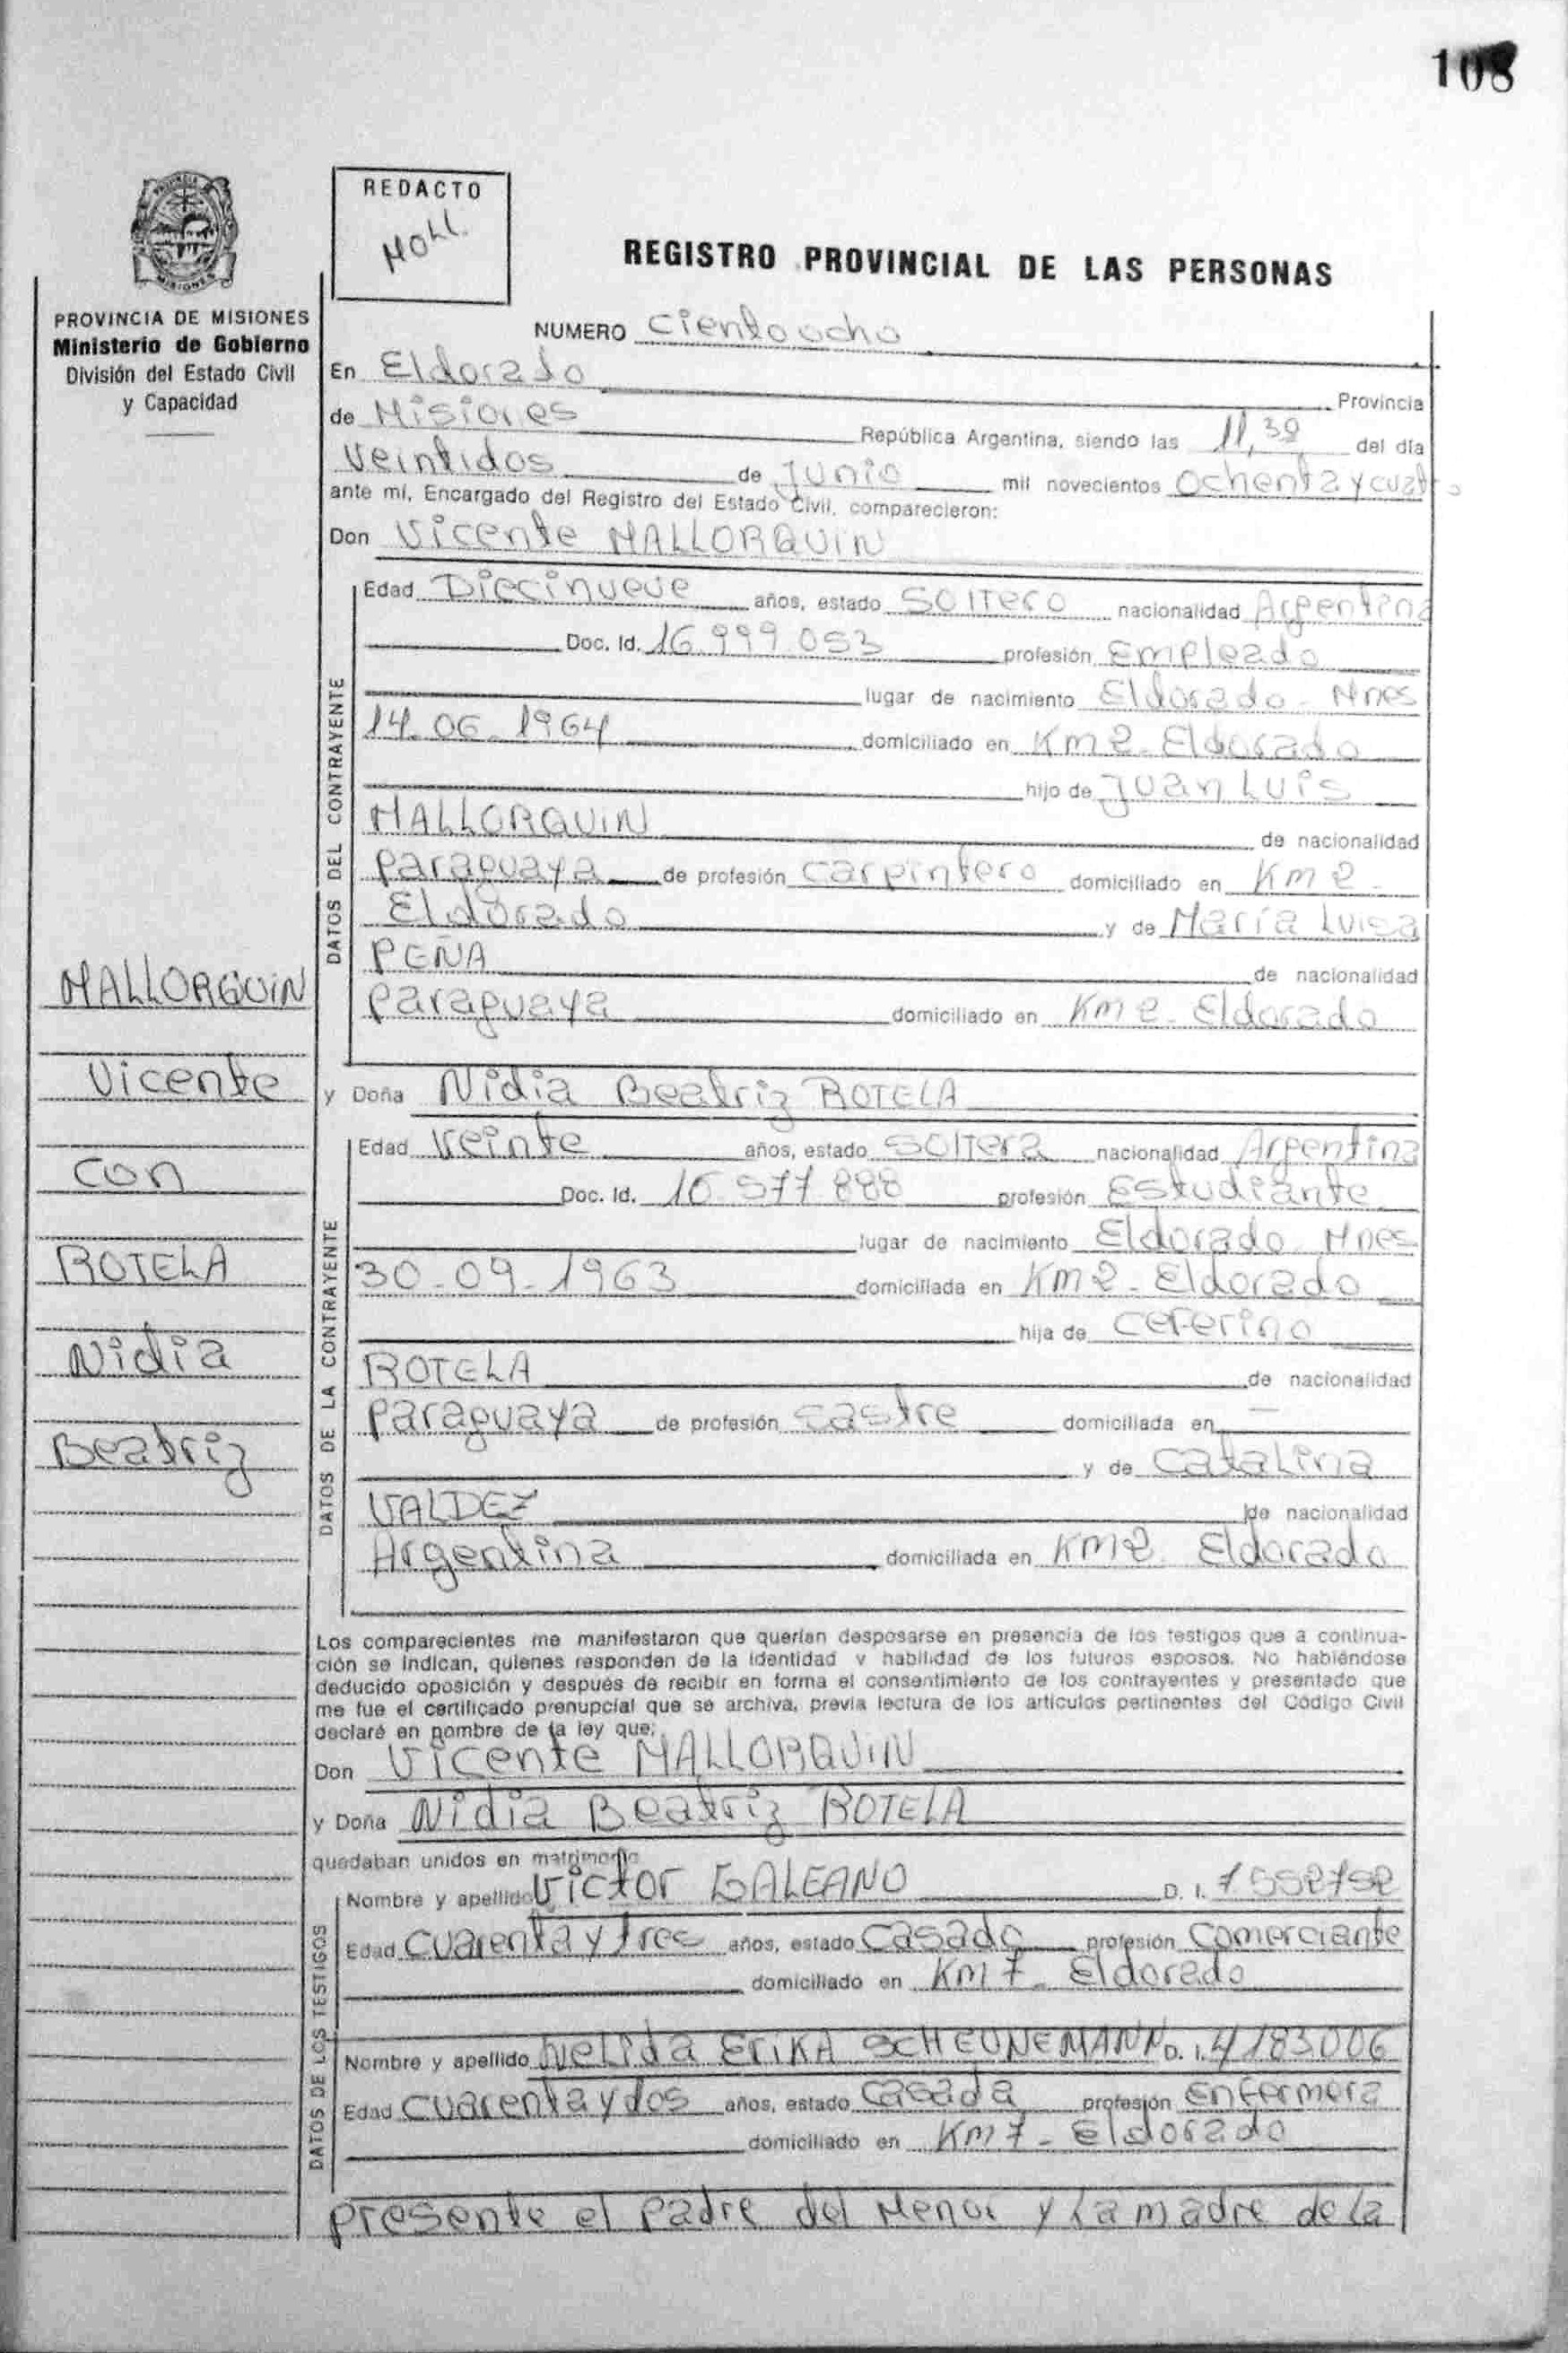 108
REDACTO
MOLL.
REGISTRO PROVINCIAL DE LAS PERSONAS
PROVINCIA DE MISIONES
Ministerio de Gobierno
División del Estado Civil
y Capacidad
NUMERO Ciento ocho
En Eldorado Provincia
de Misiones República Argentina, siendo las 11,30 del día
Veintidos de Junio mil novecientos Ochenta y cuatro
ante mí, Encargado del Registro del Estado Civil, comparecieron:
Don Vicente MALLORQUIN
DATOS DEL CONTRAYENTE
Edad Diecinueve años, estado SOLTERO nacionalidad Argentina
Doc. Id. 16.999.053 profesión Empleado
lugar de nacimiento Eldorado - Mnes
14-06-1964 domiciliado en Km 2 - Eldorado
hijo de Juan Luis
MALLORQUIN de nacionalidad
Paraguaya de profesión Carpintero domiciliado en Km 2 -
Eldorado y de María Luisa
PEÑA de nacionalidad
Paraguaya domiciliado en Km 2 - Eldorado
y Doña Nidia Beatriz ROTELA
DATOS DE LA CONTRAYENTE
Edad Veinte años, estado SOLTERA nacionalidad Argentina
Doc. Id. 16.577.888 profesión Estudiante
lugar de nacimiento Eldorado - Mnes
30-09-1963 domiciliada en Km 2 - Eldorado
hija de Ceferino
ROTELA de nacionalidad
Paraguaya de profesión Sastre domiciliada en —
y de Catalina
VALDEZ de nacionalidad
Argentina domiciliada en Km 2 Eldorado
MALLORQUIN
Vicente
con
ROTELA
Nidia
Beatriz
Los comparecientes me manifestaron que querían desposarse en presencia de los testigos que a continua-
ción se indican, quienes responden de la identidad y habilidad de los futuros esposos. No habiéndose
deducido oposición y después de recibir en forma el consentimiento de los contrayentes y presentado que
me fue el certificado prenupcial que se archiva, previa lectura de los artículos pertinentes del Código Civil
declaré en nombre de la ley que:
Don Vicente MALLORQUIN
y Doña Nidia Beatriz ROTELA
quedaban unidos en matrimonio
DATOS DE LOS TESTIGOS
Nombre y apellido Victor GALEANO D. I. 7552752
Edad Cuarenta y tres años, estado Casado profesión Comerciante
domiciliado en Km 7 - Eldorado
Nombre y apellido Nelida ERIKA SCHEUNEMANN D. I. 4183006
Edad Cuarenta y dos años, estado Casada profesión Enfermera
domiciliado en Km 7 - Eldorado
Presente el Padre del Menor y la madre de la